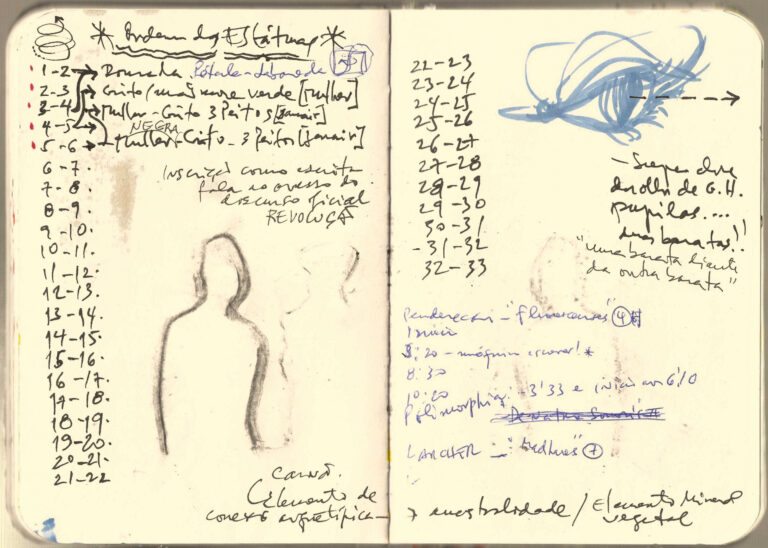 * Ordem das Estátuas *
1-2 → Rousada
2-3 → Grito/ verde [Mulher]
3-4 → Mulher - Grito 3 Peitos [Janair]
4-5 NEGRA
5-6 → Mulher - Grito - 3 Peitos [Janair]
6-7.
7-8.
8-9.
9-10.
10-11.
11-12.
12-13.
13-14.
14-15.
15-16.
16-17.
17-18.
18-19.
19-20.
20-21.
21-22
Inscrição como escrita
fala ao avesso do
discurso oficial
REVOLUÇÃ
carvão.
(Elemento de
conexão arquetípica -
22-23
23-24
24-25
25-26
26-27
27-28
28-29
29-30
30-31
-31-32
32-33
do olho de G.H.
pupilas....
duas baratas!!
"uma barata diante
da outra barata"
Penderecki - "Fluorescences" (4)
Início
8:20 - máquina escrever! *
8:30
10:20
Polimorphia: 3'33 e início aos 6'10
LARCHER - (7)
→ ancestralidade / Elemento Mineral
vegetal